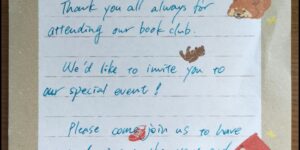 Thank you all always for
attending our book club.
We'd like to invite you to
our special event!
Please come join us to have